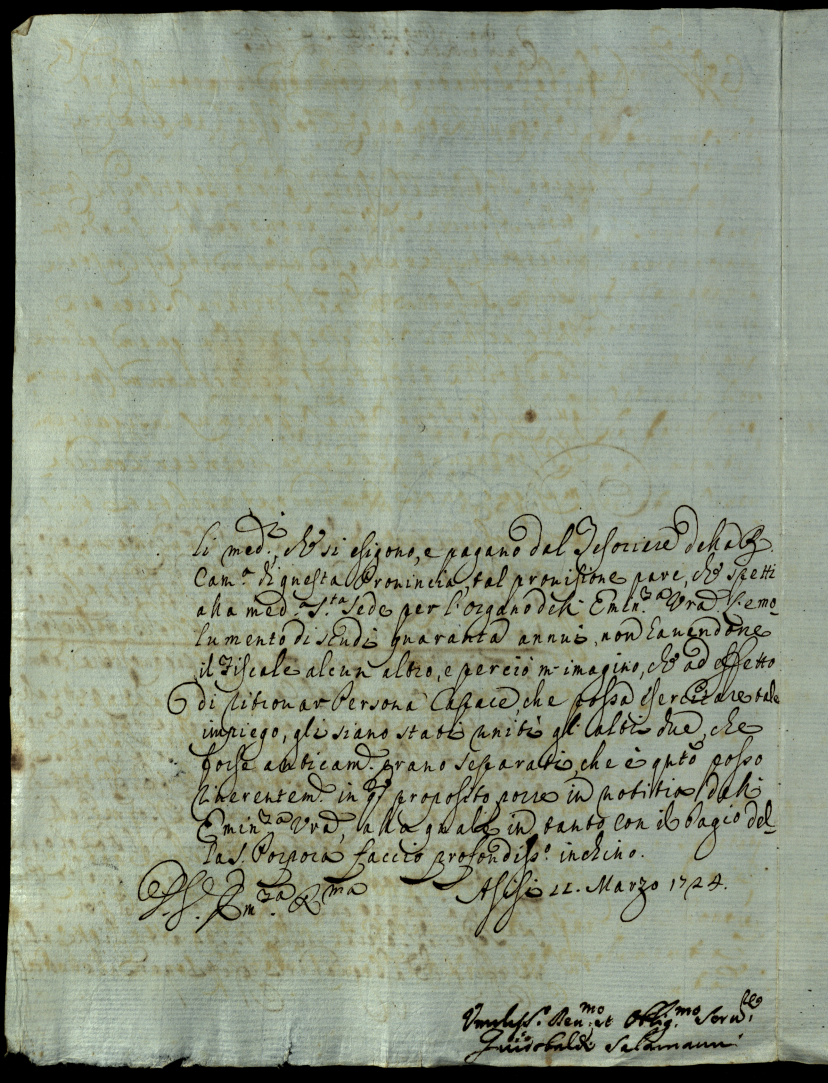 li med.i, che si esigono, e pagano dal Tesoriere della R.
Cam.a di questa Provincia, tal provisione pare, che spetti
alla med.a S.ta Sede per l'organo dell' Emin.za Vra. L'emo-
lumento di scudi quaranta annui, non havendone
il Fiscale alcun altro, e perciò m'imagino, che ad effetto
di ritrovar Persona capace che possa esercitare tale
impiego, gli siano stati uniti gl' altri due, che
forse anticam.e erano separati, che è q.nto posso
riverentem.e in q.o proposito porre in notitia dell'
Emin.za Vra, alla quale in tanto con il bagio del-
la S. Porpora faccio profondiss.o inchino.
Asisi 11. Marzo 1724.
Di V. Em.za R.ma
Humiliss.o Dev.mo et Oblig.mo Serv.re
Salamanni